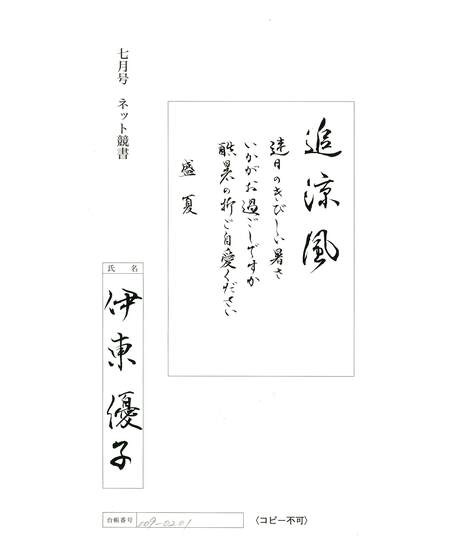 七月号 ネット競書
追涼風
連日のきびしい暑さ
いかがお過ごしですか
酷暑の折ご自愛ください
盛夏
氏名
伊東優子
台帳番号 109-0201
（コピー不可）